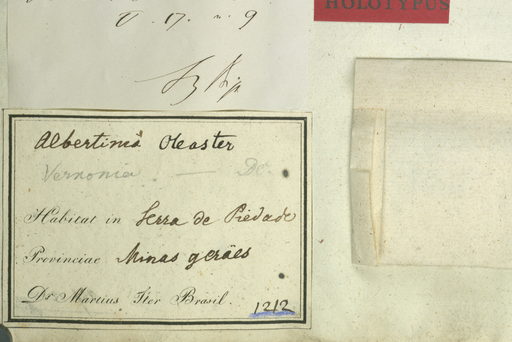 HOLOTYPUS
17. n. 9
Albertinia Oleaster
Vernonia — DC.
Habitat in Serra de Piedade
Provinciae Minas geräes
Dr Martius Iter Brasil.
1212